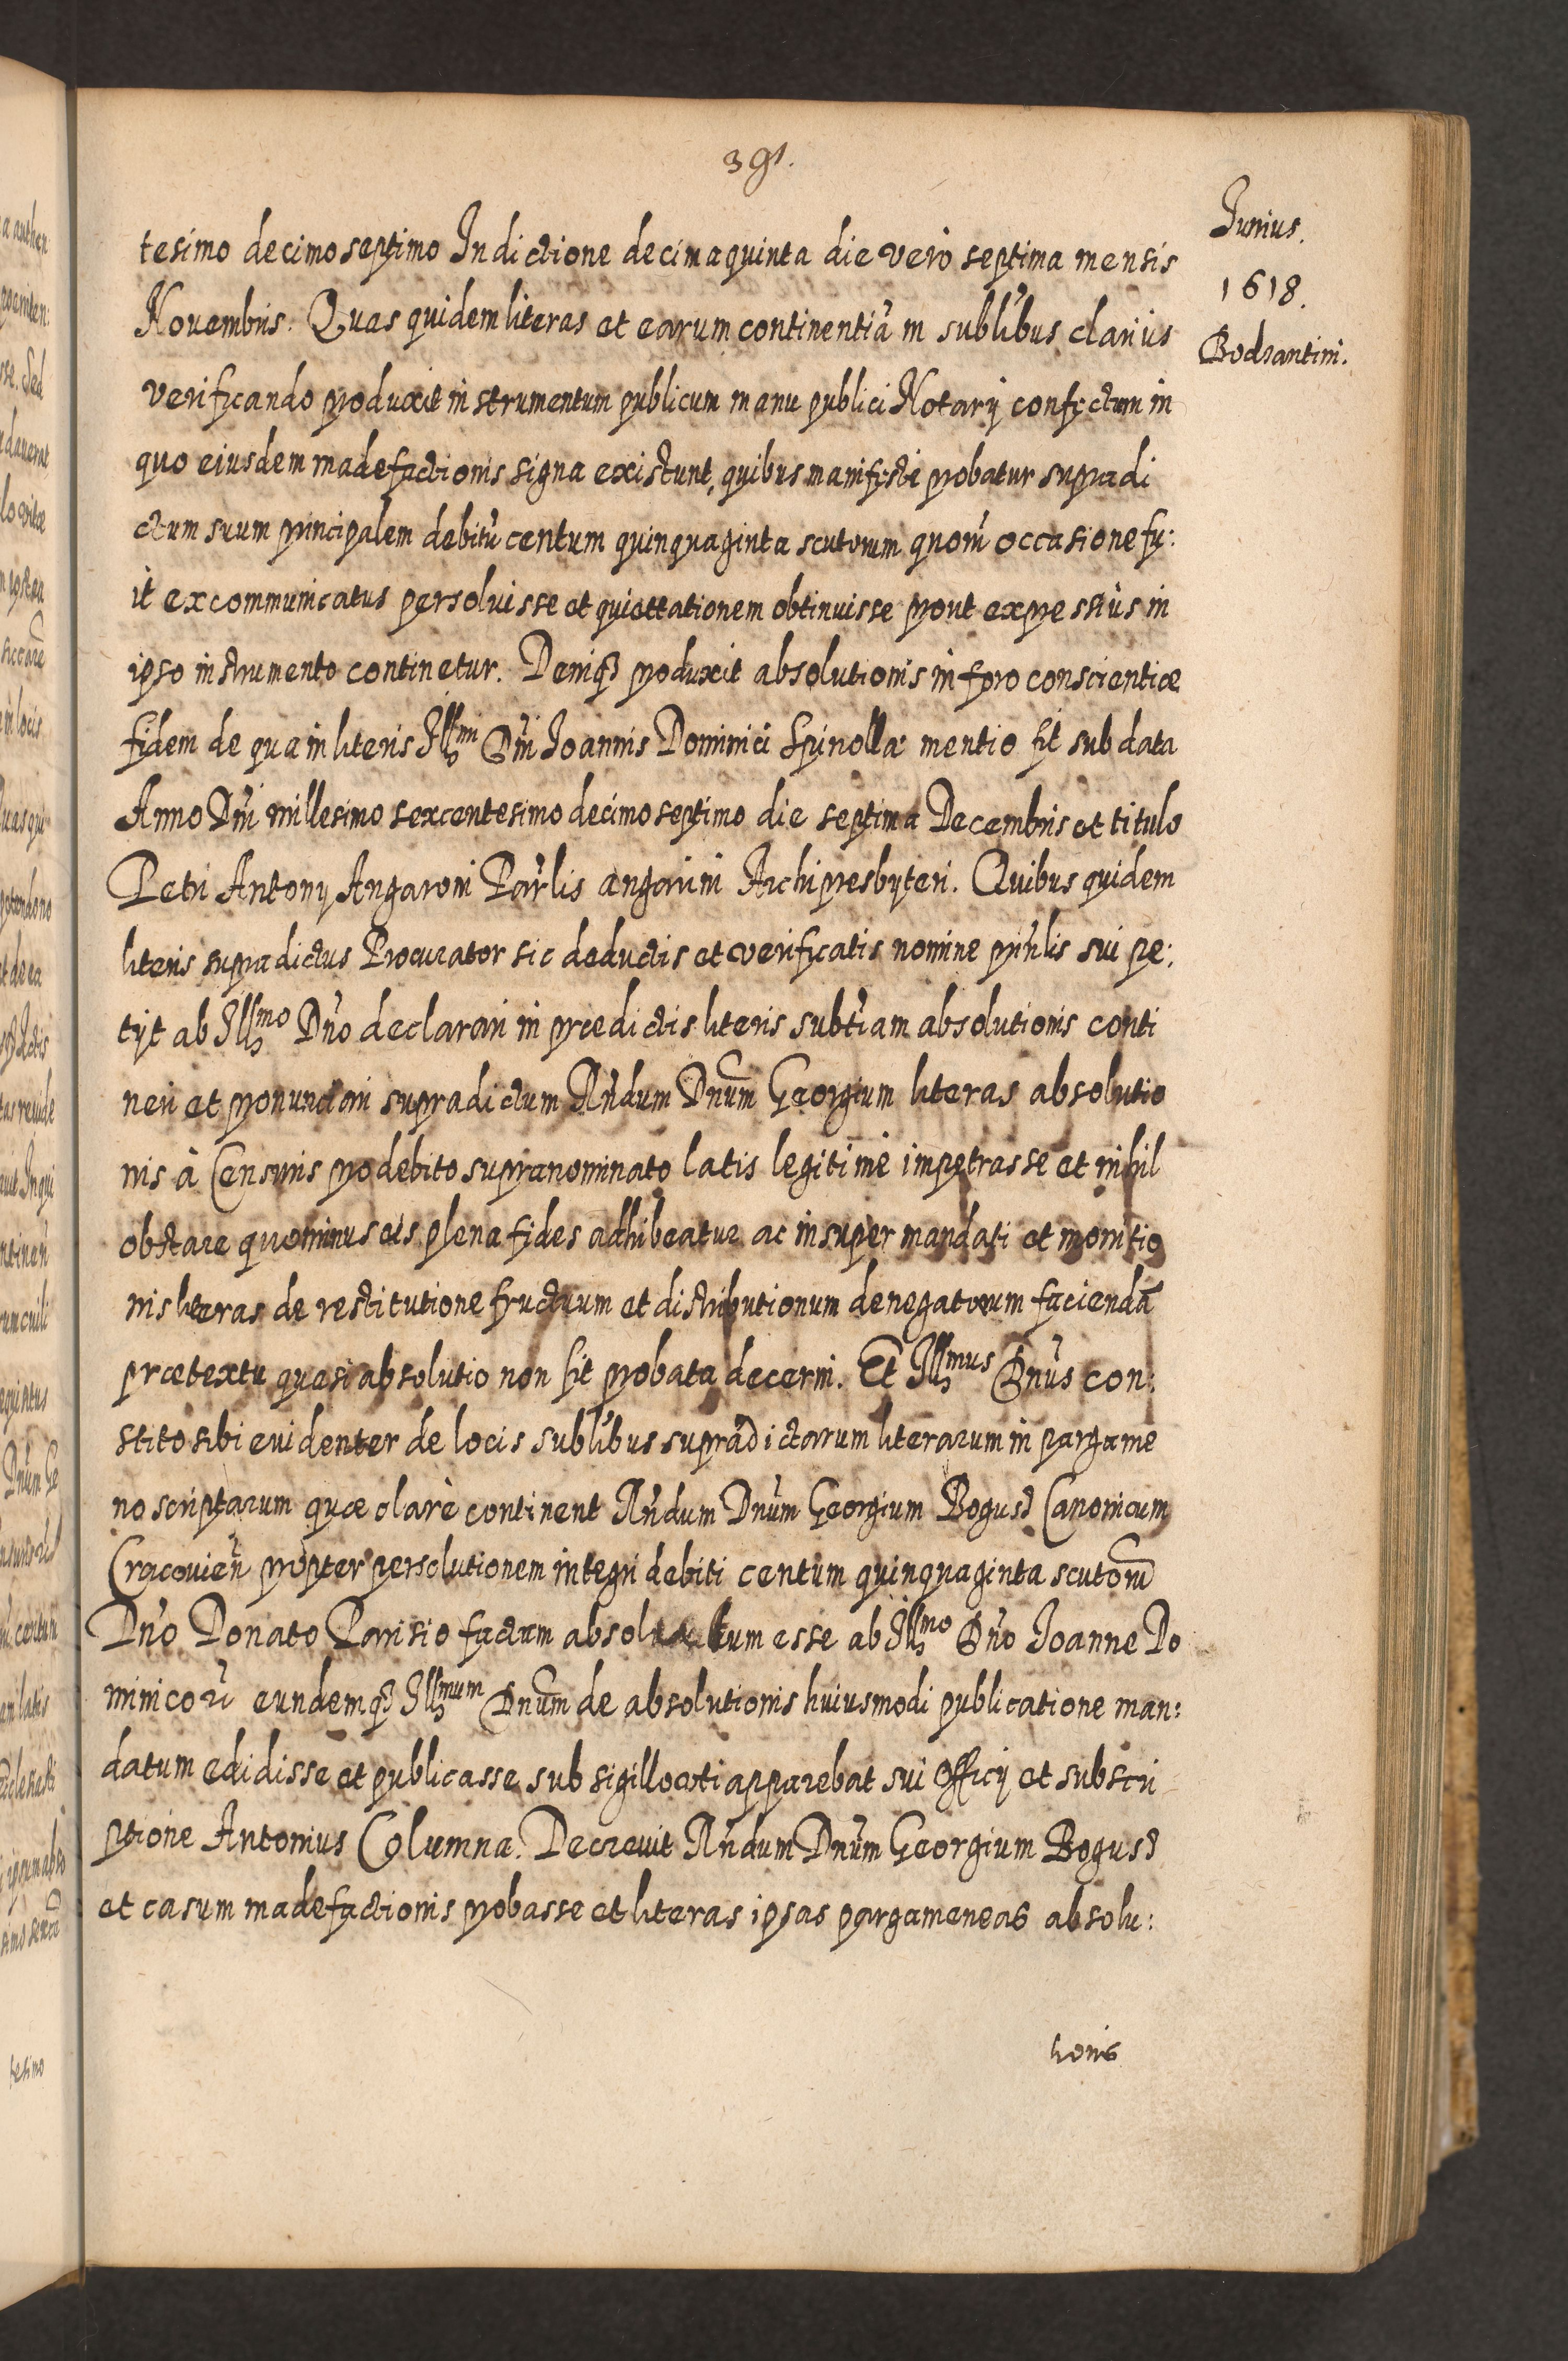 391.
Junius.
1618.
Bodzantini.
tesimo decimoseptimo Indictione decimaquinta die verò septima mensis
Novembris. Quas quidem literas et earum continentiã in sublib̃us clarius
verificando produxit instrumentum publicum manu publici Notarij confectum in
quo eiusdem madefactionis signa existunt, quibus manifeste probatur supradi
ctum suum principalem debitũ centum quinquaginta scutorum quorũ occasione fu:
it excommunicatus persoluisse et quiettationem obtinuisse prout expressius in
ipso instrumento continetur. Deniq3 produxit absolutionis in foro conscientiæ
fidem de qua in literis Illmi Dñi Joannis Dominici Spinolla mentio fit sub data
Anno Dñi millesimo sexcentesimo decimoseptimo die septima Decembris et titulo
Petri Antonij Angaroni Par̃lis angarini Archipresbyteri. Quibus quidem
literis supradictus Procurator sic deductis et verificatis nomine prinl̃is sui pe:
tijt ab Illmo Dño declarari in prædictis literis subt̃iam absolutionis conti
neri et pronunciari supradictum Rñdum Dnum̃ Georgium literas absolutio
nis à Censuris pro debito supranominato latis legitimè impetrasse et nihil
obstare quominus eis plena fides adhibeatur ac insuper mandati et monitio
nis literas de restitutione fructuum et distributionum denegatorum faciendã
prætextu quasi absolutio non sit probata decerni. Et Illmus Dñus con:
stito sibi evidenter de locis sublib̃us supradictarum literarum in pargame
no scriptarum quæ clarè continent Rñdum Dñum Georgium Bogusz Canonicum
Cracovieñ propter persolutionem integri debiti centum quinquaginta scutorũ
Dño Donato Parisio factam absolutum esse ab Illmo Dño Joanne Do
minico eundemq3 Illmum Dnum̃ de absolutionis huiusmodi publicatione man:
datum edidisse et publicasse sub sigillo uti apparebat sui officij et subscri
ptione Antonius Columna. Decrevit Rñdum Dñum Georgium Bogusz
et casum madefactionis probasse et literas ipsas pargameneas absolu:
tionis